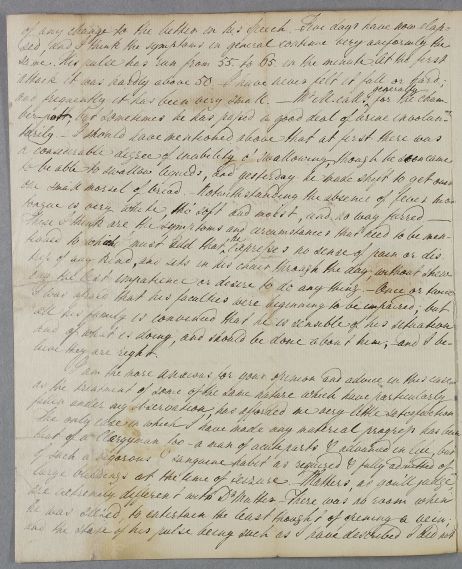 of any change to the better in his speech. Five days have now elap-
sed and I think the symptoms in general continue very uniformly the
same. His pulse has run from 55 to 65 in the minute. At the first
attack it was hardly above 50. I have never felt it full or hard;
and frequently it has been very small. — Mr M. calls generally for the cham-
ber-pot, but sometimes he has passed a good deal of urine involun-
tarily. — I should have mentioned above that at first there was
a considerable degree of inability of swallowing, though he soon came
to be able to swallow liquids, and yesterday he made shift to get over
one small morsel of bread. Notwithstanding the absence of fever his
tongue is very white, tho' soft and moist, and no way furred —
These I think are the symptoms and circumstances that need to be men-
tioned to which I must add that he expresses no sense of pain or dis-
tress of any kind, and sits in his chair through the day without shew-
ing the least impatience or desire to do any thing. Once or twice
I was afraid that his faculties were beginning to be impaired; but
all his family is convinced that he is sensible of his situation
and of what is doing, and should be done about him; and I be-
lieve they are right.
I am the more anxious for your opinion and advice in this case
as the treatment of some of the same nature which have particularly
fallen under my observation, has afforded me very little satisfaction
The only case in which I have made any material progress has been
that of a Clergyman too — a man of acute parts & advanced in life, but
of such a vigorous & sanguine habit as required & fully admitted of
large bleedings at the time of seizure. Matters, as you'll judge
are extremely different with Dr There was no room when
he was seized, to entertain the least thought of opening a vein;
and the state of his pulse being such as I have described I did not